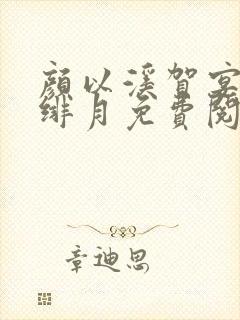 顏以溪賀宴
緋月免費閱
章迪思